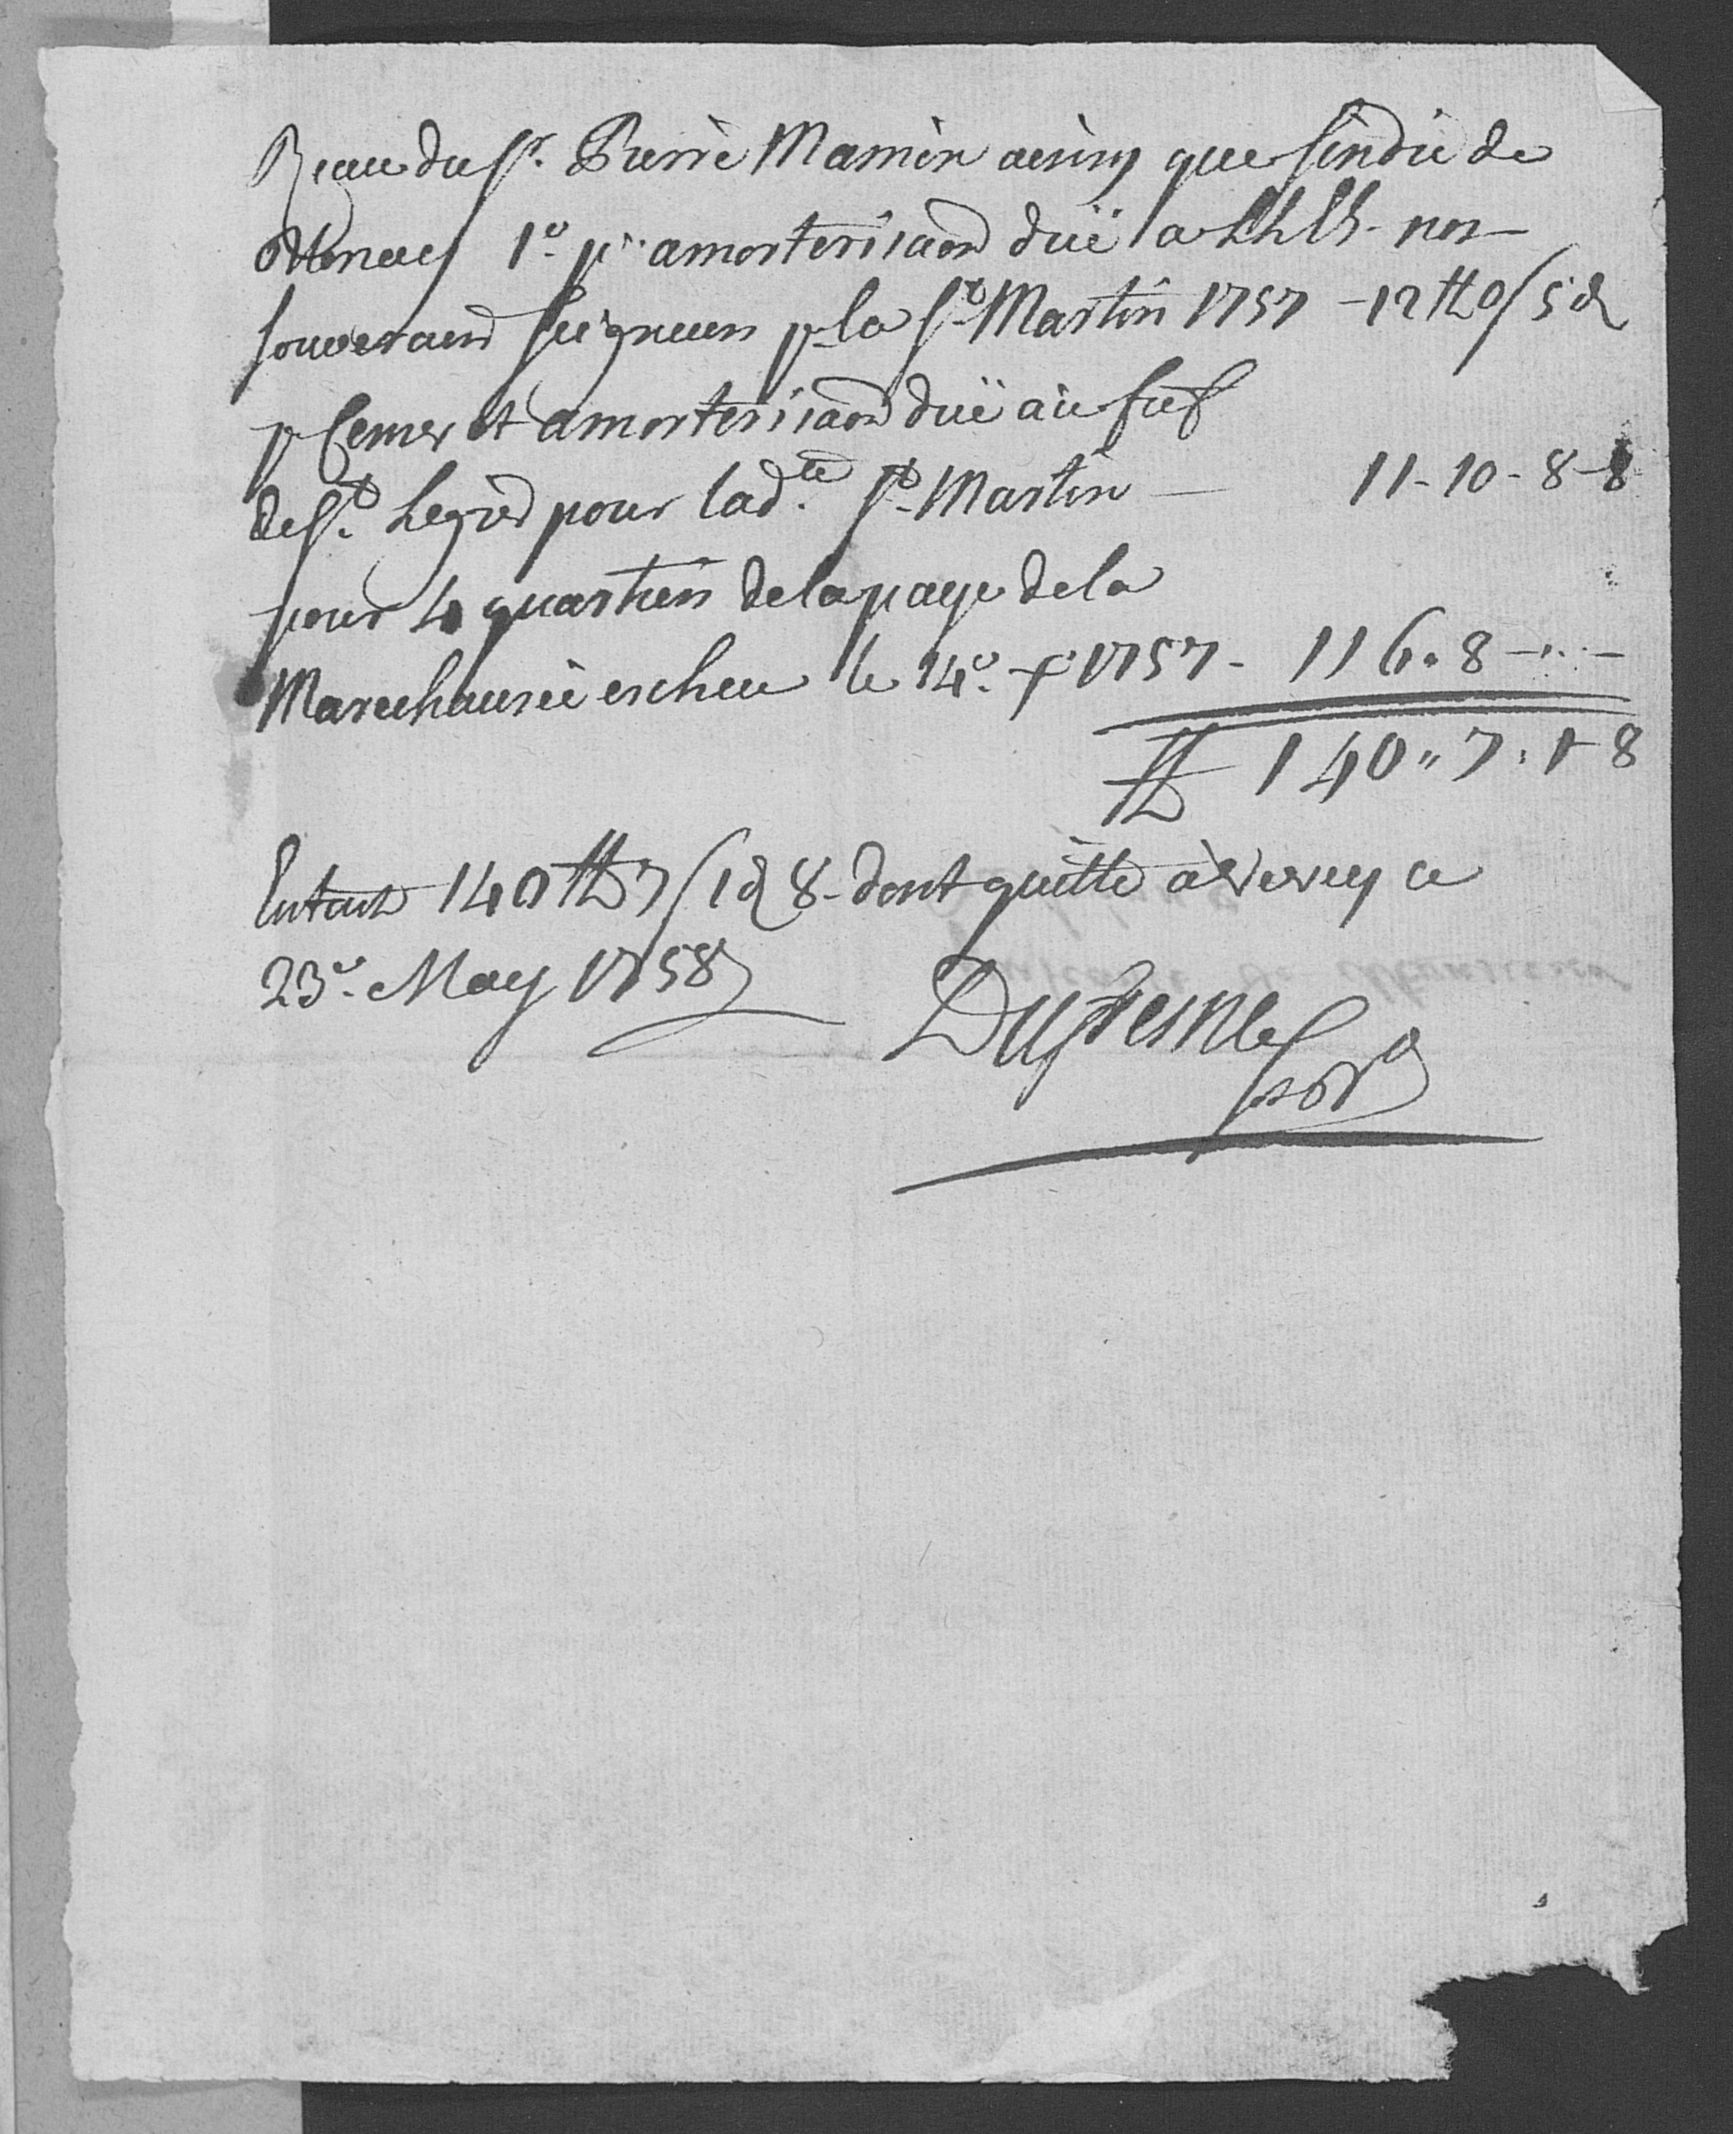 Receu du Sr. Pierre Mamin ainsy que sindic de
Blonay 1o. pr. amorterisaon düe a LL. EE. nos
souverains seigneurs pr la St Martin 1757 - 12 ℔ 0 s 5 d
pr Censes et amorterisaon düe au fief
de St. Legier pour lad.te St. Martin — 11 - 10 - 8 - 8
pour 4 quartiers de la paye de la
Marechaussée escheu le 14e. 1757 - 116 . 8 - . . -
℔ 140 " 7 . 1 - 8
En tout 140 ℔ 7 s 1 d 8 - dont quitte à Vevey ce
23e. May 1758
Dufresne